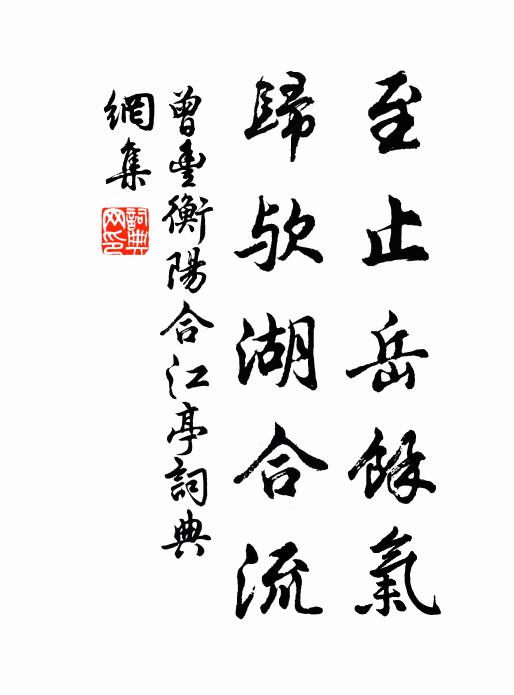 至止岳餘氣
歸欤湖合流
曾豐衡陽合江亭詞典
網集
詞典
网印